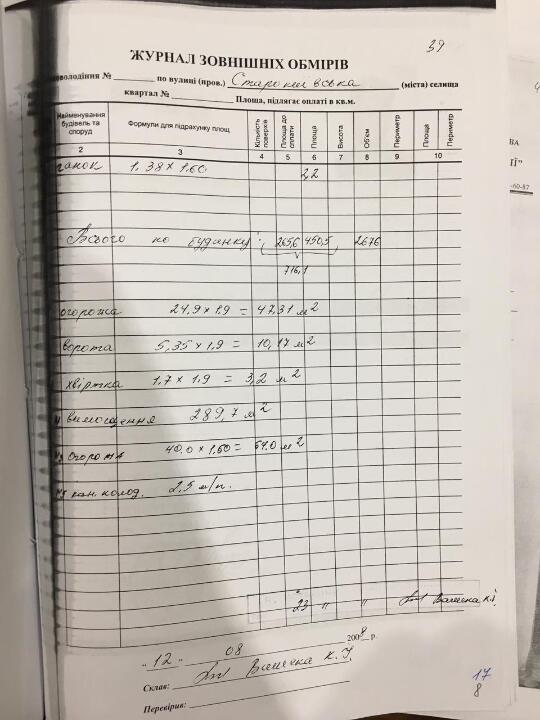 39
ЖУРНАЛ ЗОВНІШНІХ ОБМІРІВ
оволодіння № по вулиці (пров.) Старокиївська (міста) селища
квартал № Площа, підлягає оплаті в кв.м.
Найменування будівель та споруд Формули для підрахунку площ Кількість поверхів Площа до оплати Площа Висота Об'єм Периметр Площа Периметр
2 3 4 5 6 7 8 9 10
ганок 1,38 x 1,60 2,2
Всього по будинку: 265,6 450,5 2676
716,1
огорожа 24,9 x 1,9 = 47,31 м2
ворота 5,35 x 1,9 = 10,17 м2
хвіртка 1,7 x 1,9 = 3,2 м2
вимощення 289,7 м2
огорожа 40,0 x 1,60 = 64,0 м2
кан. колод. 2,5 м/п.
23 " "
"12" 08 2008 р.
Склав:
Перевірив:
17
8
ВА
ІЇ"
-60-87